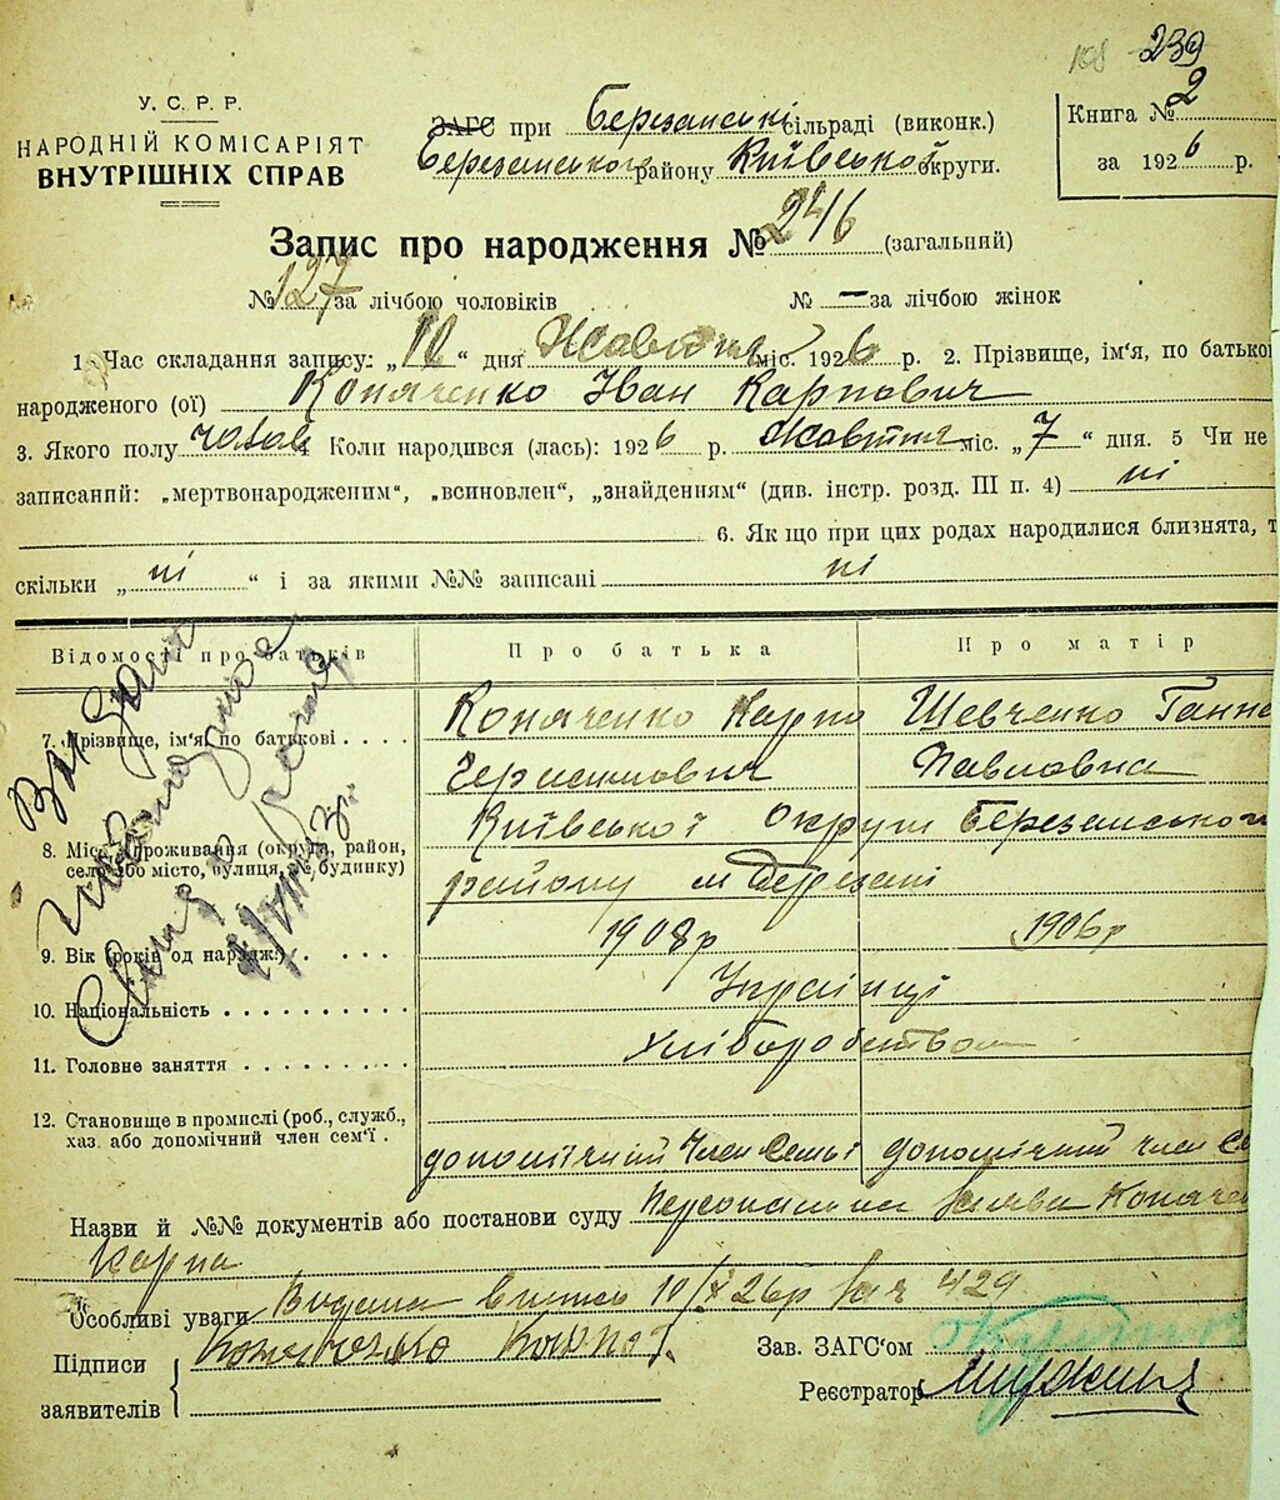 168 239
У. С. Р. Р.
НАРОДНІЙ КОМІСАРІЯТ
ВНУТРІШНІХ СПРАВ
ЗАГС при Березанські сільраді (виконк.)
Березанського району Київської округи.
Книга № 2
за 1926 р.
Запис про народження № 246 (загальний)
№ 127 за лічбою чоловіків № — за лічбою жінок
1. Час складання запису: „10“ дня Жовтня міс. 1926 р. 2. Прізвище, ім'я, по батько
народженого (ої) Копяченко Іван Карпович
3. Якого полу чолов 4 Коли народився (лась): 1926 р. Жовтня міс. „7“ дня. 5 Чи не
записаний: „мертвонародженим“, „всиновлен“, „знайденням“ (див. інстр. розд. III п. 4) ні
6. Як що при цих родах народилися близнята, т
скільки „ні“ і за якими №№ записані ні
Відомості про батьків Про батька Про матір
7. Прізвище, ім'я, по батькові . . . . Копяченко Карпо Шевченко Ганне
Павловна
Київської округи Березанського
8. Місце проживання (округа, район,
село або місто, вулиця, № будинку) району м Березані
9. Вік (років од нарудж.) . . . . 1908р 1906р
10. Національність . . . . . . . . . . Українці
11. Головне заняття . . . . . . . . . Хліборобством
12. Становище в промислі (роб., служб.,
хаз. або допомічний член сем'ї .
допомічний член семьі допомічний член се
Назви й №№ документів або постанови суду Персональна заява Копяче
Карпа
Особливі уваги Видана випись 10/X 26р за № 429
Підписи
заявителів
Копяченко Карпо
Зав. ЗАГС'ом
Реєстратор